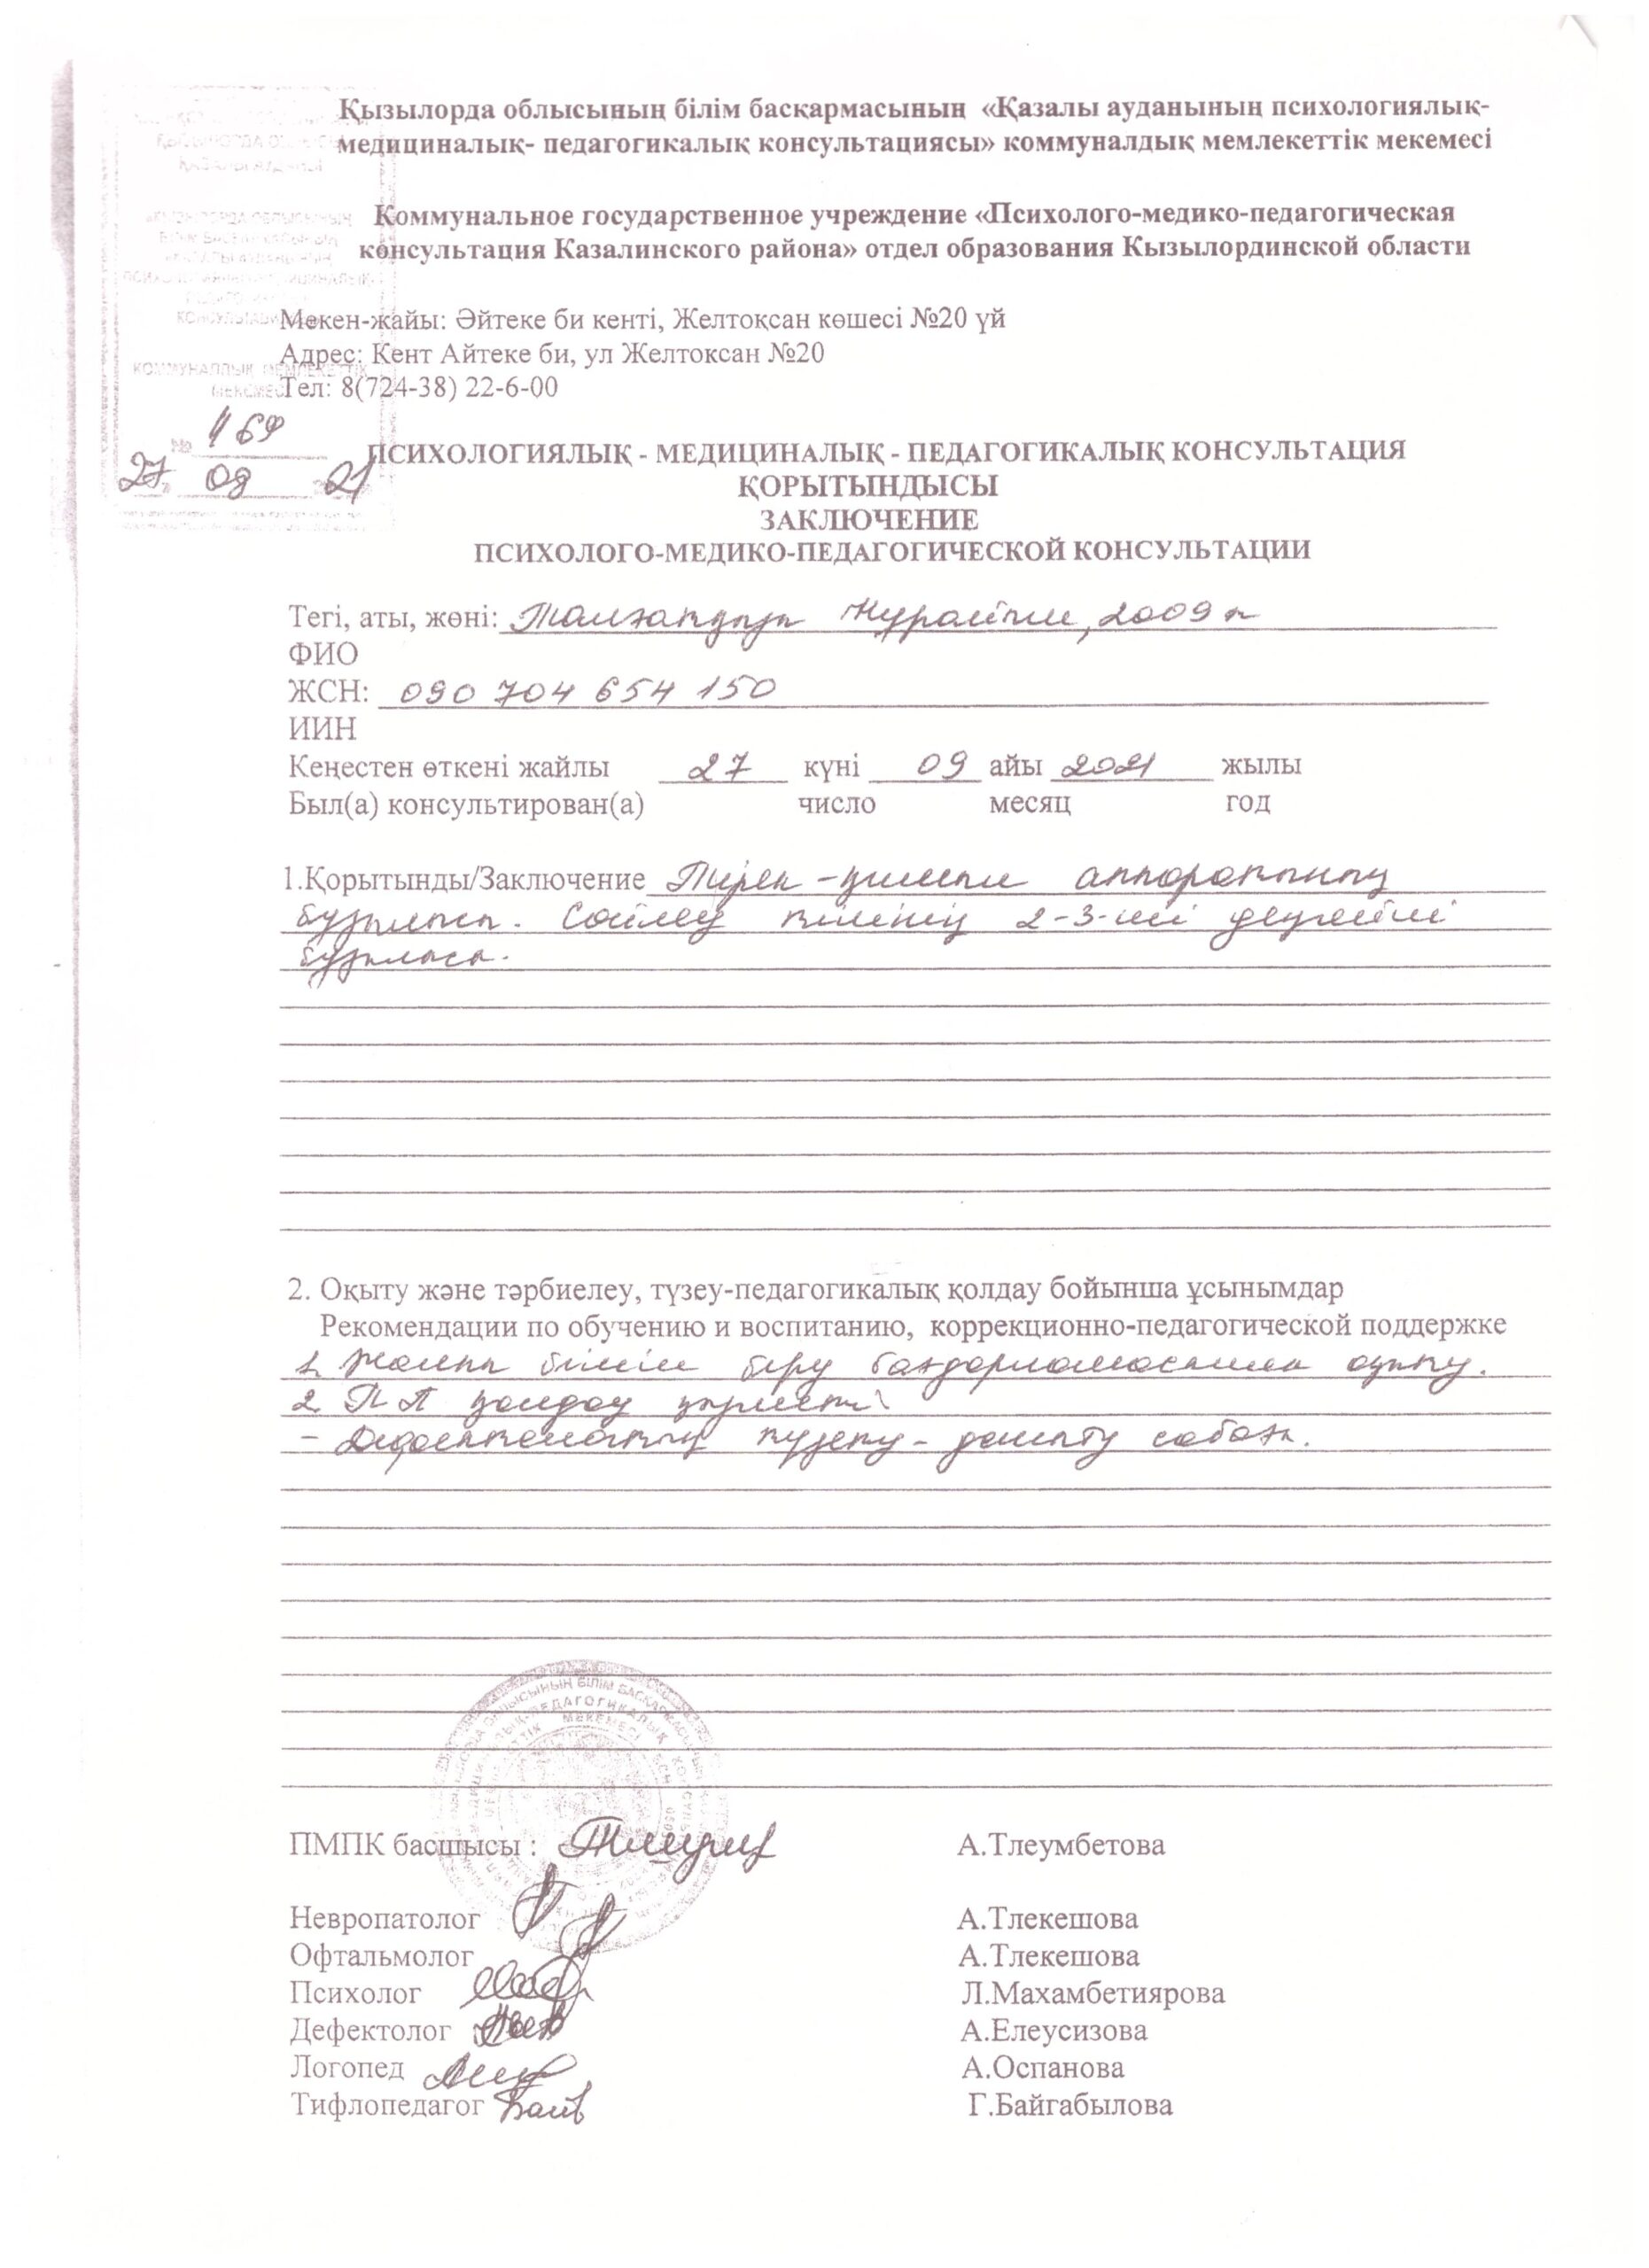 Қызылорда облысының білім басқармасының «Қазалы ауданының психологиялық-
медициналық- педагогикалық консультациясы» коммуналдық мемлекеттік мекемесі
Коммунальное государственное учреждение «Психолого-медико-педагогическая
консультация Казалинского района» отдел образования Кызылординской области
Мекен-жайы: Әйтеке би кенті, Желтоқсан көшесі №20 үй
Адрес: Кент Айтеке би, ул Желтоксан №20
КОММУНАЛДЫҚ МЕМЛЕКЕТТІК
МЕКЕМЕСІ
Тел: 8(724-38) 22-6-00
№ 469
27 09 21
ПСИХОЛОГИЯЛЫҚ - МЕДИЦИНАЛЫҚ - ПЕДАГОГИКАЛЫҚ КОНСУЛЬТАЦИЯ
ҚОРЫТЫНДЫСЫ
ЗАКЛЮЧЕНИЕ
ПСИХОЛОГО-МЕДИКО-ПЕДАГОГИЧЕСКОЙ КОНСУЛЬТАЦИИ
Тегі, аты, жөні: 2009
ФИО
ЖСН: 090 704 654 150
ИИН
Кеңестен өткені жайлы 27 күні 09 айы 2021 жылы
Был(а) консультирован(а) число месяц год
1.Қорытынды/Заключение Тірек-қимыл аппаратының
бұзылысы. Сөйлеу тілінің 2-3-ші деңгейлі
бұзылысы.
2. Оқыту және тәрбиелеу, түзеу-педагогикалық қолдау бойынша ұсынымдар
Рекомендации по обучению и воспитанию, коррекционно-педагогической поддержке
1. Жалпы білім беру бағдарламасымен оқыту.
2. ПП қолдау қызметі
- Дефектологтың түзету-дамыту сабағы.
ПМПК басшысы : А.Тлеумбетова
Невропатолог А.Тлекешова
Офтальмолог А.Тлекешова
Психолог Л.Махамбетиярова
Дефектолог А.Елеусизова
Логопед А.Оспанова
Тифлопедагог Г.Байгабылова